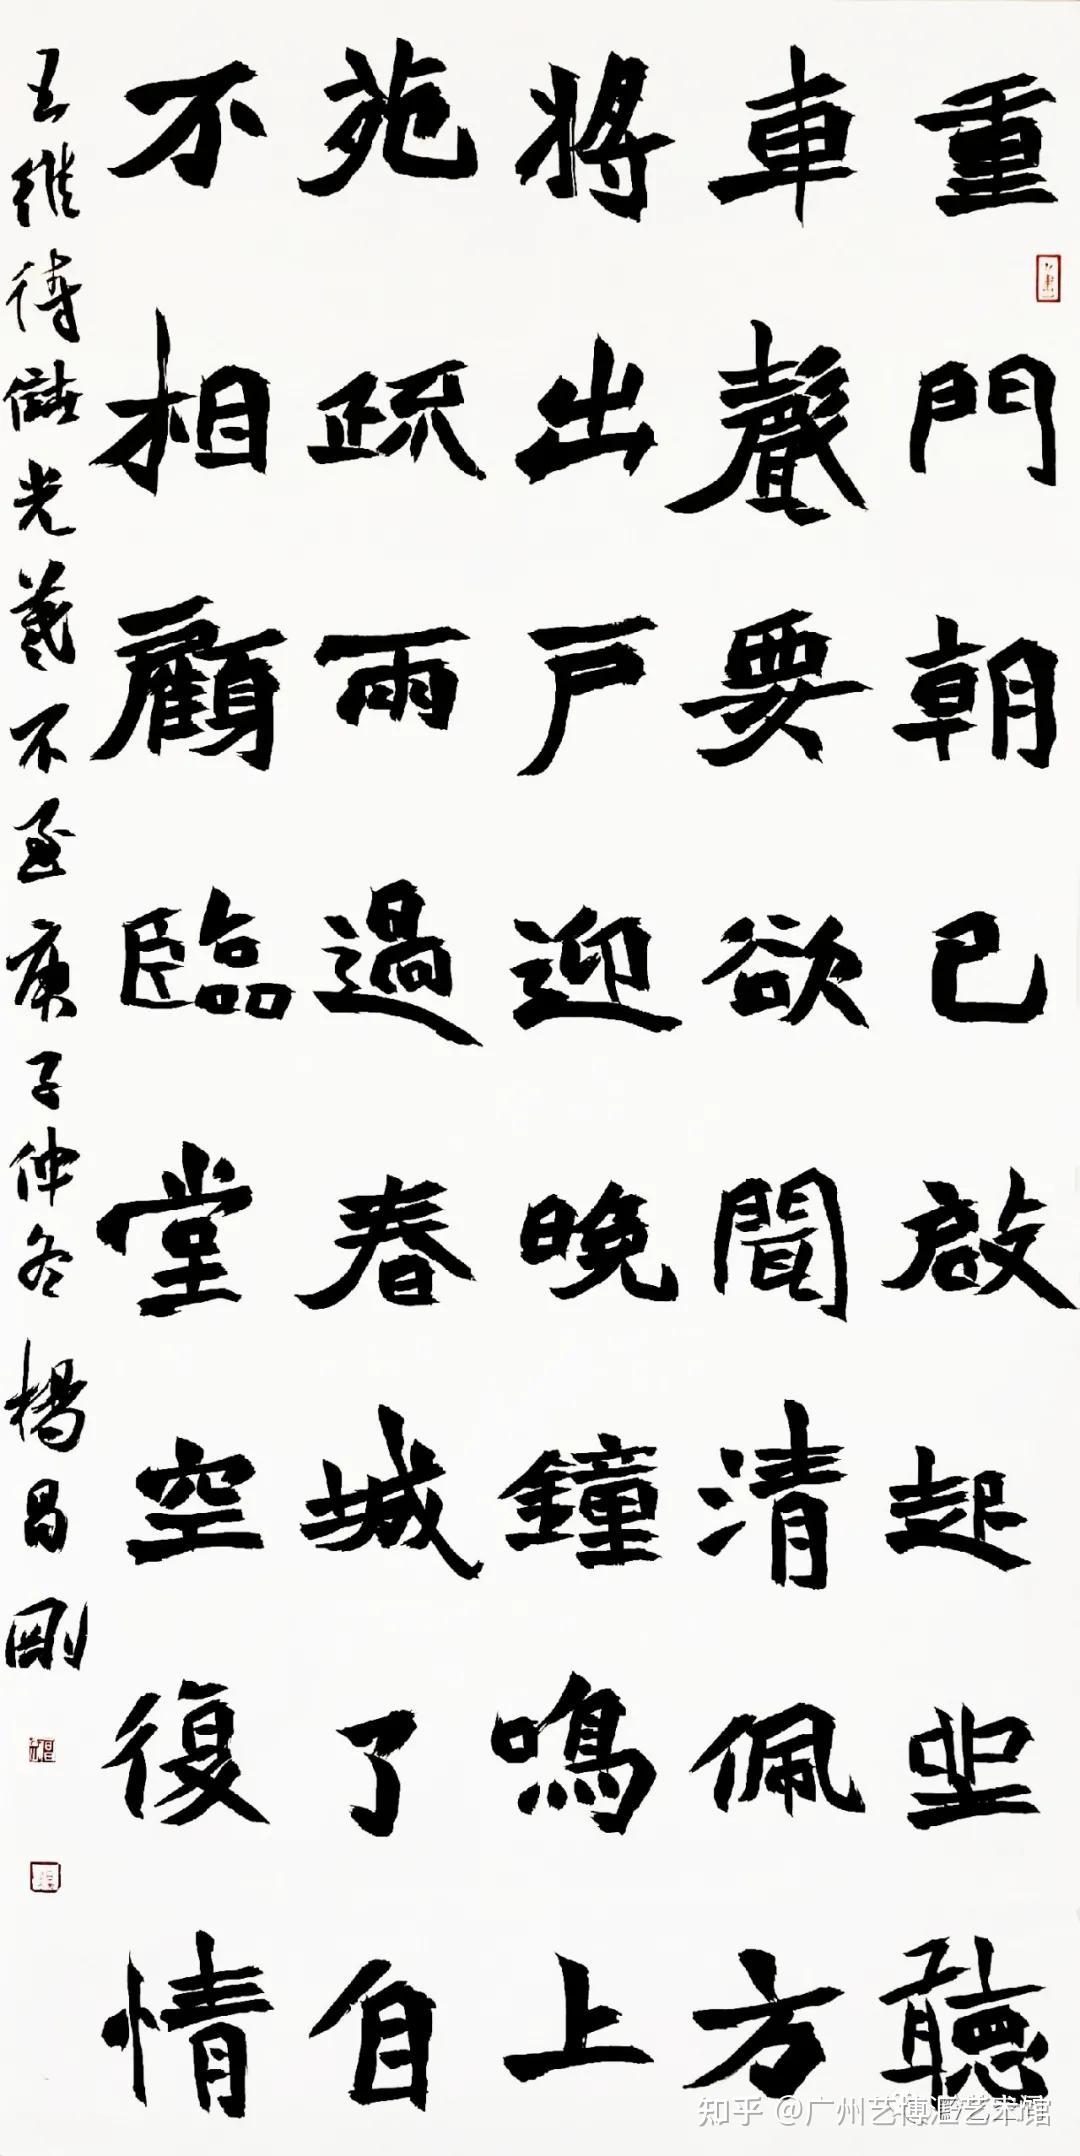 重門朝已啟起坐聽
車聲要欲聞清佩方
將出戶迎晚鐘鳴上
苑疏雨過春城了自
不相顧臨堂空復情
王維待儲光羲不至庚子仲冬楊昌剛
知乎 @广州艺博滙艺术馆